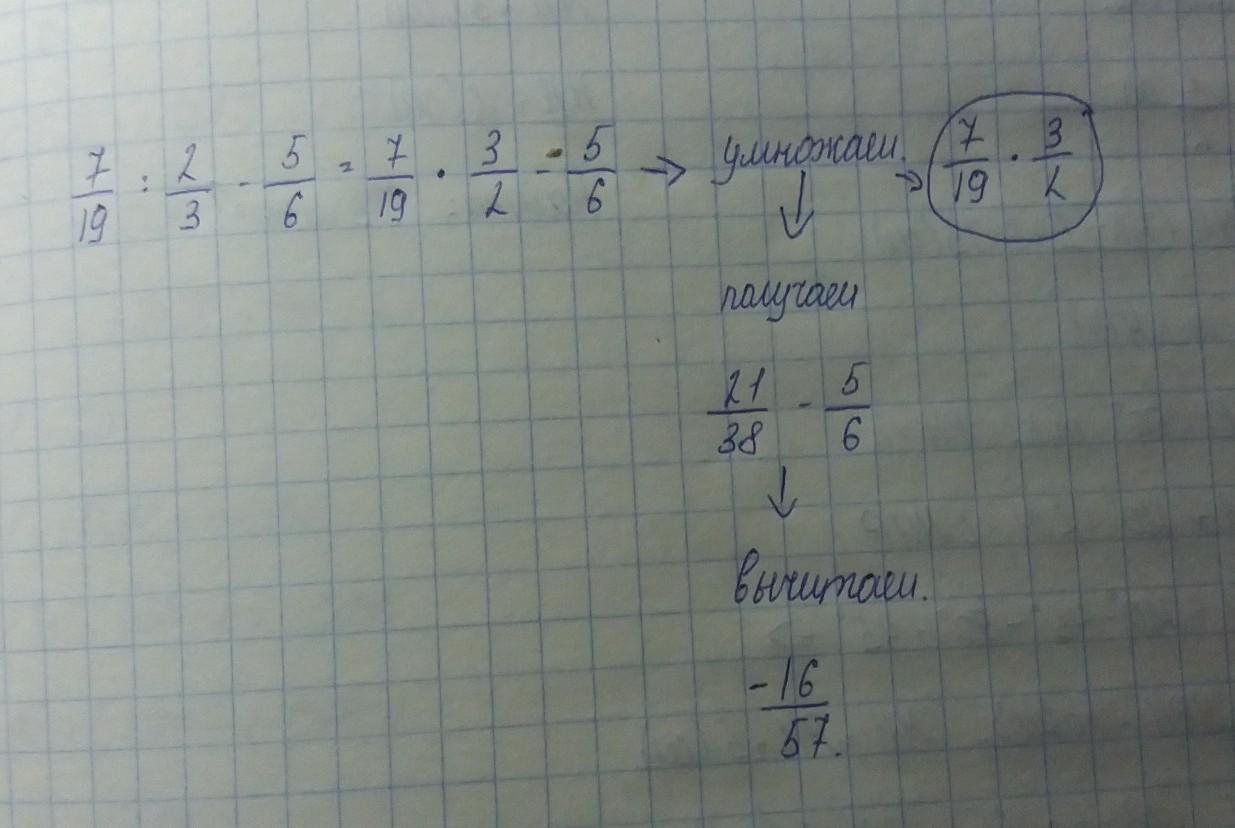 7/19 : 2/3 - 5/6 = 7/19 · 3/2 - 5/6 → умножаем. → 7/19 · 3/2
↓
получаем
21/38 - 5/6
↓
вычитаем.
-16/57.